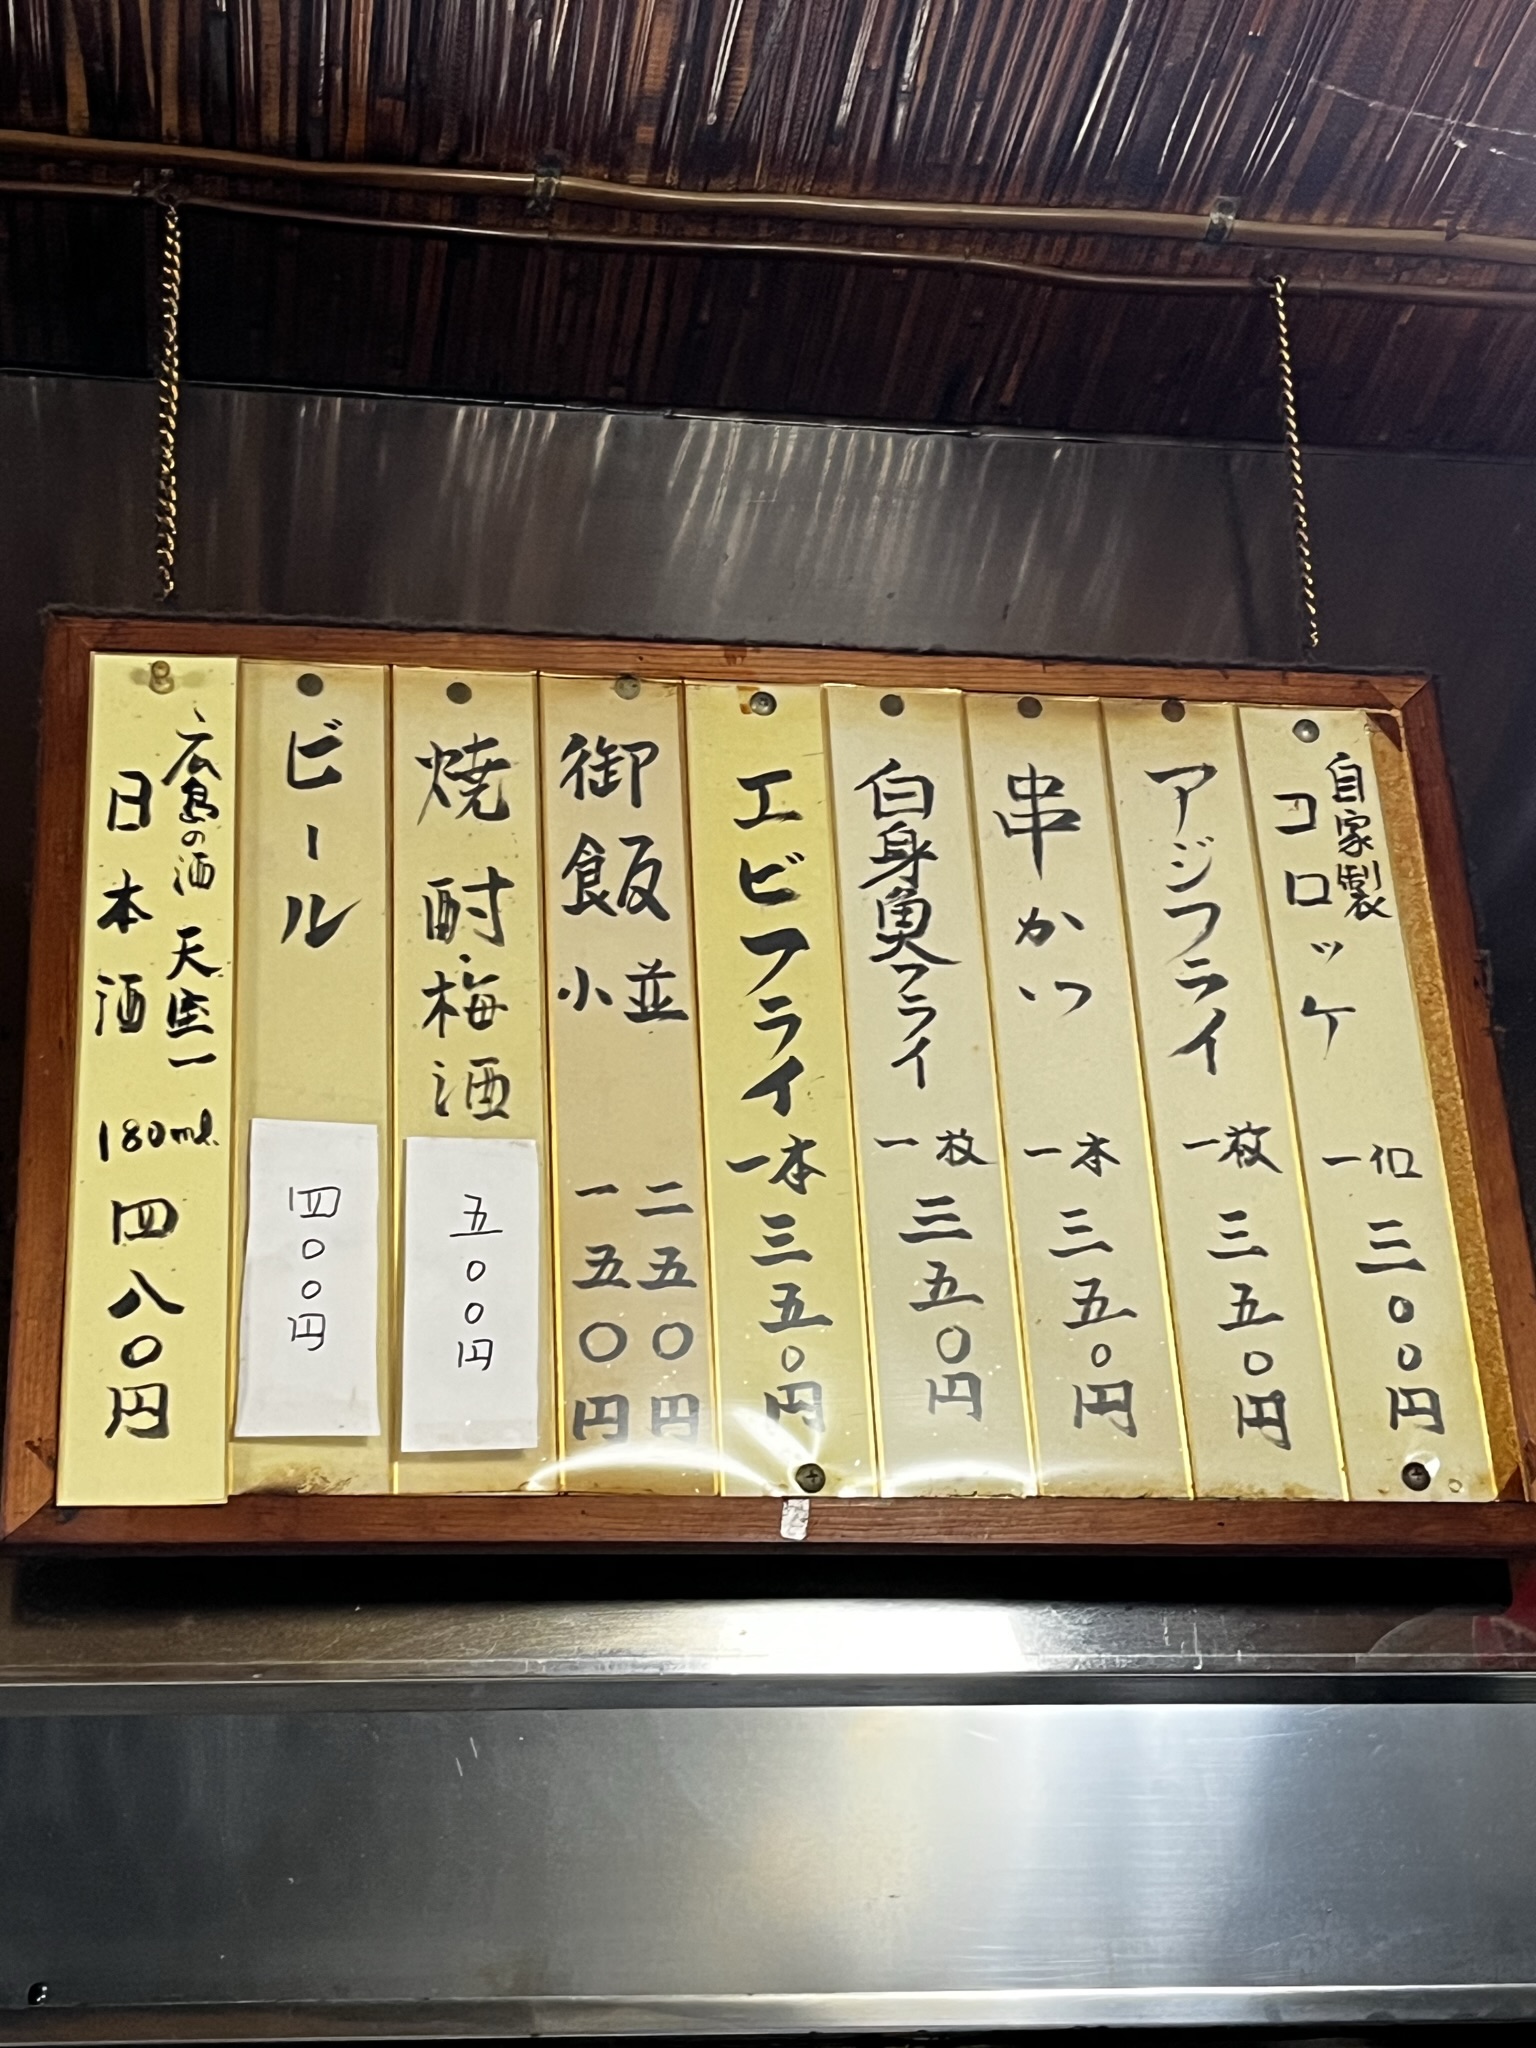 自家製
コロッケ 一個 三〇〇円
アジフライ 一枚 三五〇円
串かつ 一本 三五〇円
白身魚フライ 一枚 三五〇円
エビフライ 一本 三五〇円
御飯 並 二五〇円
小 一五〇円
焼酎・梅酒 五〇〇円
ビール 四〇〇円
広島の酒 天宝一
日本酒 180ml 四八〇円